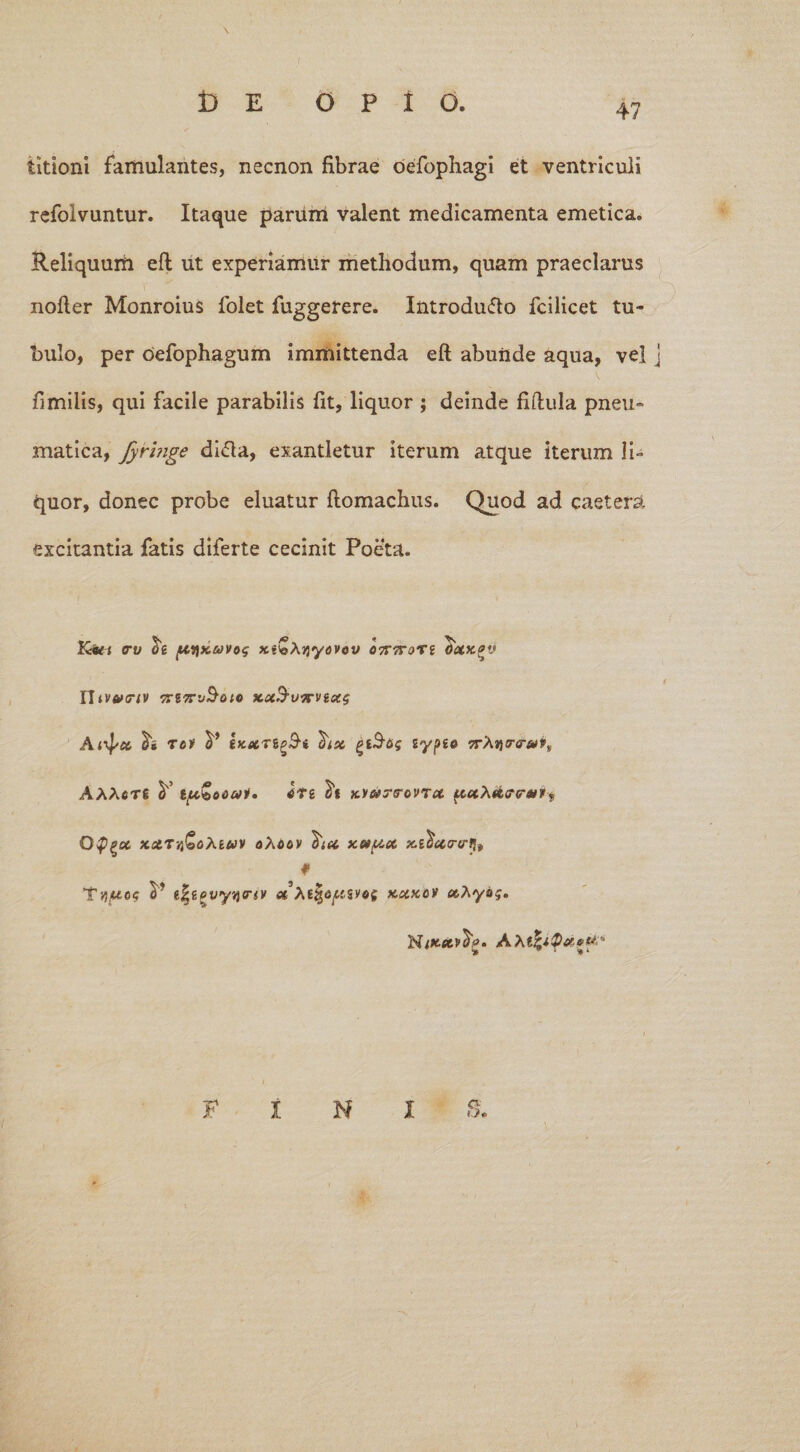 DE OPIO. 47
titioni famulantes, necnon fibrae oefophagi et ventriculi
refolvuntur. Itaque parum valent medicamenta emetica.
Reliquum eft ut experiamur methodum, quam praeclarus
nofter Monroius folet fuggerere. Introducto fcilicet tu-
bulo, per oefophagum immittenda eft abunde aqua, vel
fimilis, qui facile parabilis fit, liquor ; deinde fiftula pneu-
matica, fyringe dicta, exantletur iterum atque iterum li-
quor, donec probe eluatur ftomachus. Quod ad caetera
excitantia fatis diferte cecinit Poëta.
Και συ δε μηκωνος κεβληγονου ὁπποτε δακρυ
Πινωσιν πεπυθοιο καθυπνεας
Αιψα δε τον δ' ἑκατερθε δια ρεθὸς εγρεο πλησσων,
Αλλοτε δ' εμβοοων. ὁτε δε κνωσσοντα μαλάσσων,
Οφρα κατηβολεων ολοον δια κωμα κεδασσῃ,
Τημος δ' εξερυγησιν αλεξομενος κακον αλγος.
Νικανδρ. Αλεξιφαρμ.
FINIS.